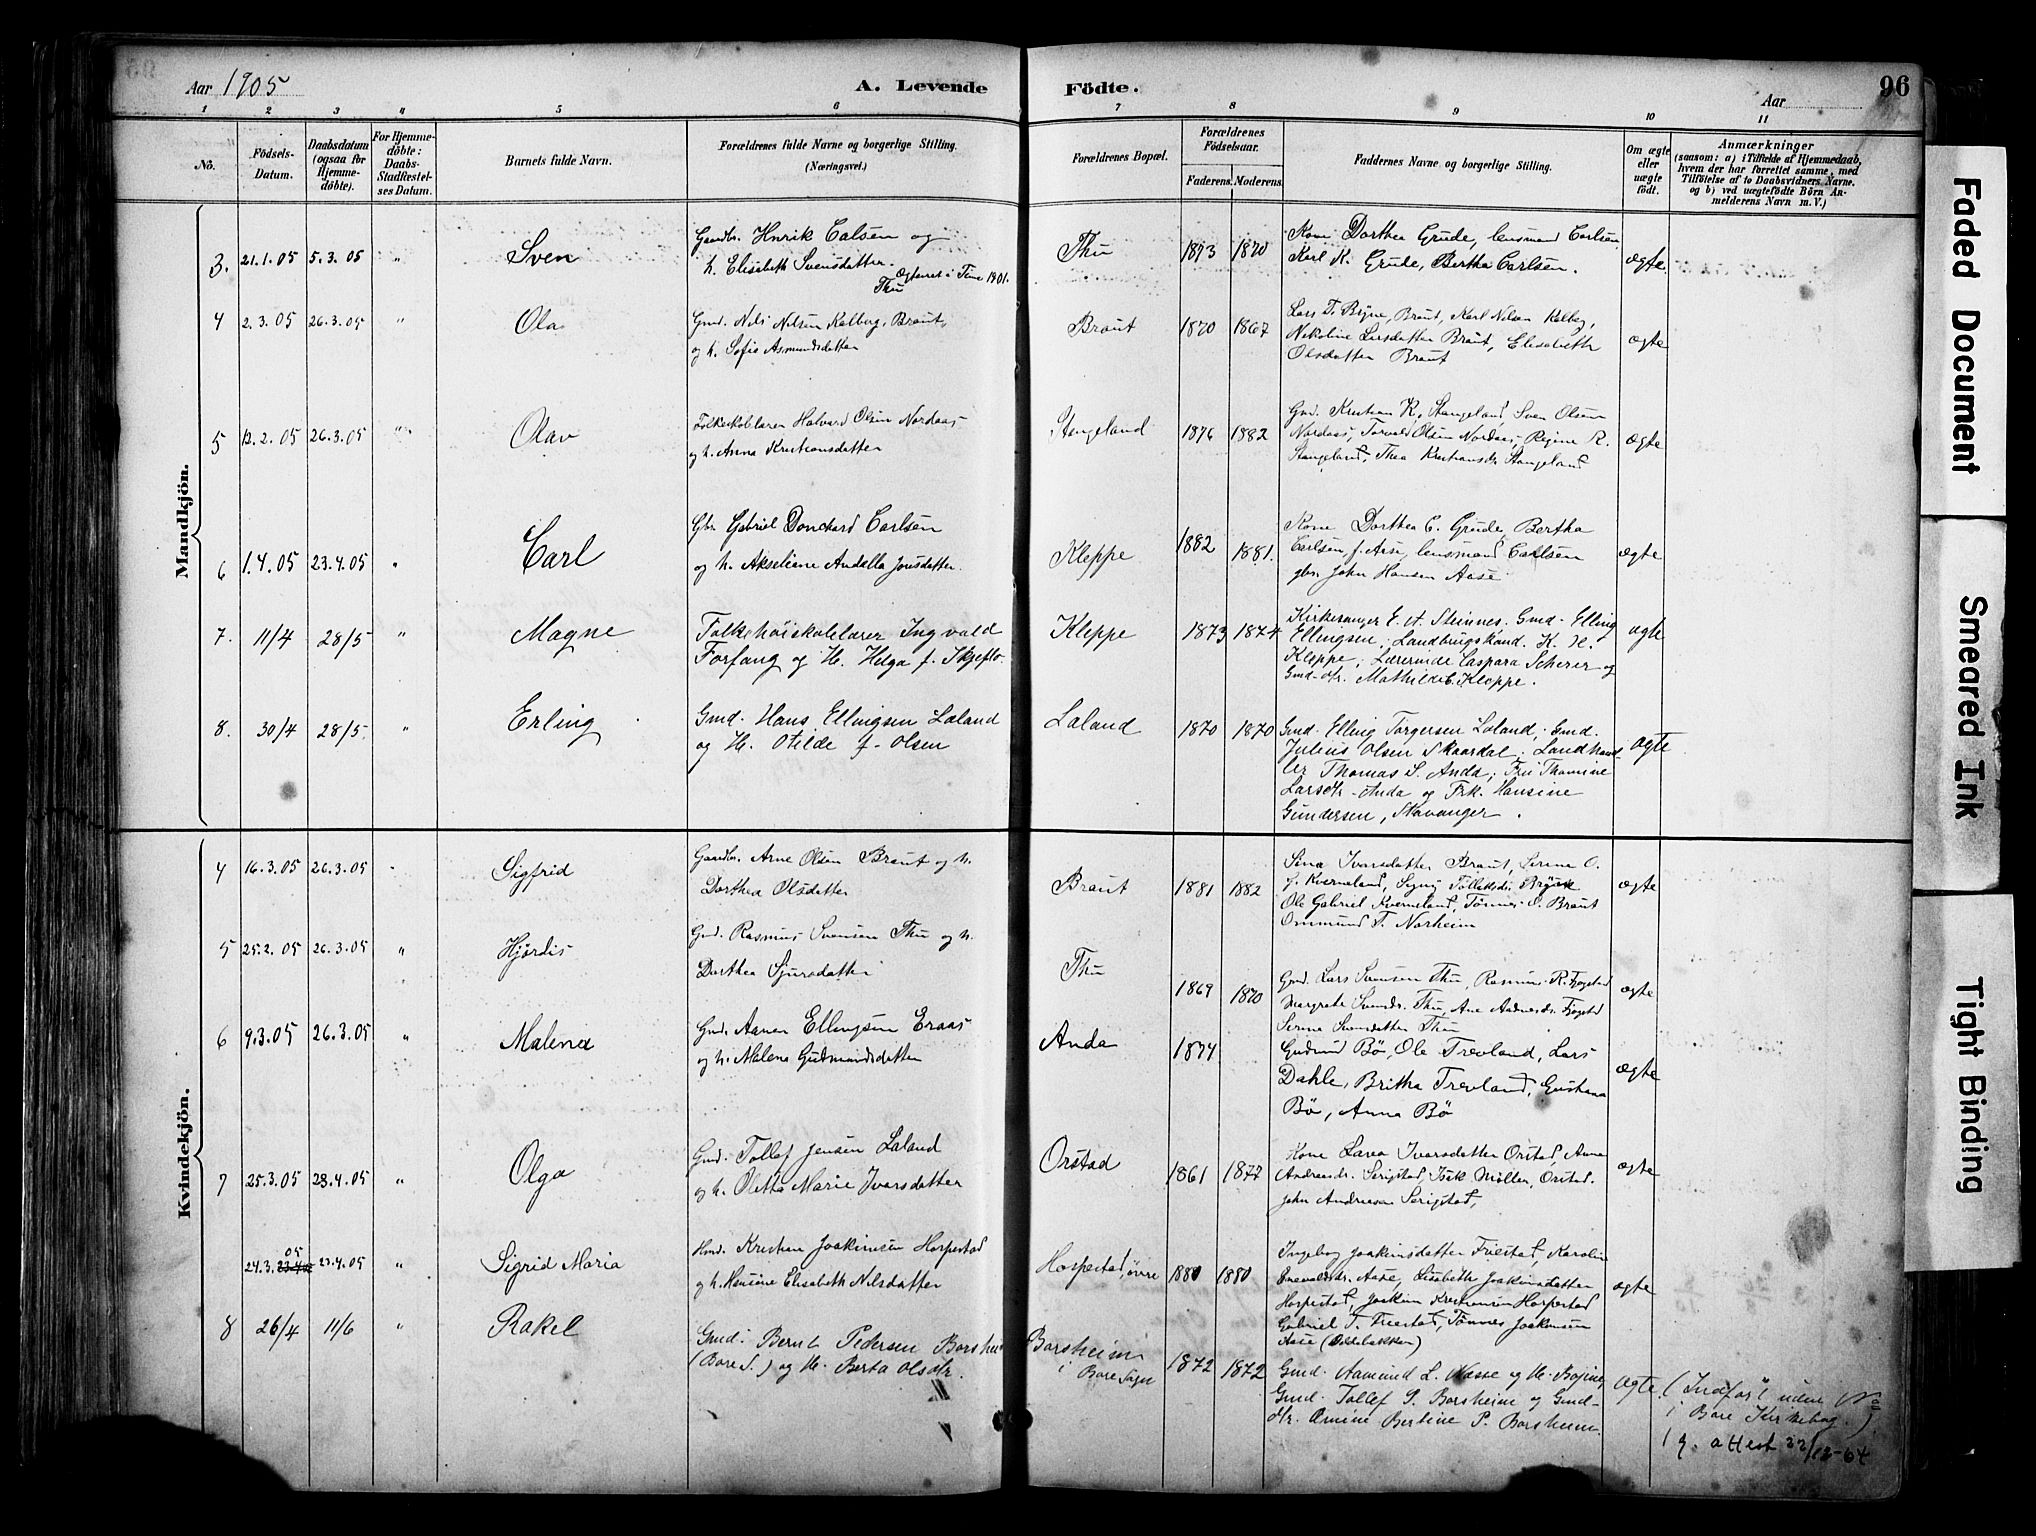 Aar 1905
A. Levende
Födte.
Aar
96
1 2 3 " 5 6 7 8 9 10 11
No.
Födsels-
Datum.
Daabsdatum
(ogsaa for
Hjemme-
döbte).
For Hjemme-
döbte:
Daabs-
Stadfæstel-
ses Datum.
Barnets fulde Navn.
Forældrenes fulde Navne og borgerlige Stilling.
(Næringsvei.)
Forældrenes Bopæl.
Forældrenes
Födselsaar.
Faderens. Moderens.
Faddernes Navne og borgerlige Stilling.
Om ægte
eller
uægte
födt.
Anmærkninger
(saasom: a) i Tilfælde af Hjemmedaab,
hvem der har forrettet samme, med
Tilföielse af to Daabsvidners Navne.
og b) ved uægtefödte Börn An-
melderens Navn m. V.)
Mandkjön.
3. 21.1.05 5.3.05 " Sven
Gaardbr. Henrik Calsen og
h. Elisabeth Svensdatter.
Thu
1870
Kone Dorthea Grude, lensmand Carlsen
Karl K. Grude, Bertha Carlsen.
ægte
4 2.3.05 26.3.05 " Ola
Gmd. Nils Nilsen Kalberg, Braut,
og h. Sofie Asmundsdatter
Braut
1870 1867
Lars T. Bryne, Braut, Karl Nilsen Kalberg,
Nikoline Larsdatter Braut, Elisabeth
Olsdatter Braut
ægte
5 12.2.05 26.3.05 " Olav
Folkeskolelærer Halvard Olsen Nordaas
og h. Anna Kristiansdatter
Stangeland
1876 1882
Gmd. Kristian R. Stangeland, Sven Olsen
Nordaas, Torvald Olsen Nordaas, Regine R.
Stangeland, Thea Kristiansdr. Stangeland
ægte
6 1.4.05 23.4.05 " Carl
Gbr. Gabriel Donchard Carlsen
og h. Akseliane Andella Jonsdatter.
Kleppe
1882 1881.
Kone Dorthea C. Grude, Bertha
Carlsen, f. Aase, lensmand Carlsen
gbr. John Hansen Aase
ægte
7. 11/4 28/5 " Magne
Folkehöiskolelærer Ingvald
Forfang og H. Helga f. Skjeflo.
Kleppe
1873 1874
Kirkesanger E. A. Steinnes. Gmd. Elling
Ellingsen; Landbrugskand. K. H.
Kleppe; Lærerinde Caspara Scherer og
Gmd-dtr. Mathilde E. Kleppe.
ægte
8. 30/4 28/5. " Erling
Gmd. Hans Ellingsen Laland
og H. Otilde f. Olsen
Laland
1870 1870
Gmd. Elling Torgersen Laland, Gmd.
Julius Olsen Skaardal. Landhand-
ler Thomas S. Anda; Fru Thomine
Larsdtr. Anda og Frk. Hansine
Gundersen, Stavanger.
ægte
Kvindekjön.
4 16.3.05 26.3.05 Sigfrid
Gaardbr. Arne Olsen Braut og h.
Dorthea Olsdatter
Braut
1881 1882
Sina Ivarsdatter Braut, Serine O.
f. Kverneland, Signy Tollefsdr. Bryne
Ole Gabriel Kverneland, Tønnes S. Braut
Ommund T. Norheim
ægte
5 25.2.05 26.3.05 " Hjørdis
Gmd. Rasmus Svensen Thu og h.
Dorthea Sjursdatter
Thu
1869 1870
Gmd. Lars Svensen Thu, Rasmus R. Fjogstad
Margrete Svendr. Thu, Ane Aadnesdr. Fjogstad
Serine Svensdatter Thu
ægte
6 9.3.05 26.3.05 " Malena
Gmd. Aanen Ellingsen Eraas
og h. Malena Gudmundsdatter
Anda
1874
Gudmund Bø, Ole Trevland, Lars
Dahle, Britha Trevland, Gustava
Bø, Anna Bø
ægte
7 25.3.05 23.4.05 " Olga
Gmd. Tollef Jensen Laland
og h. Oletta Marie Ivarsdatter
Orstad
1861 1877
Kone Lava Ivarsdatter Orstad, Anna
Andreasdr. Serigstad, Isak Møllen, Orstad.
John Andreasen Serigstad,
ægte
24.3.05 23.4.05 " Sigrid Maria
Hmd. Kristian Joakimsen Horpestad
og h. Hansine Elisabeth Nilsdatter
Horpestad, øvre
1880 1880
Ingeborg Joakimsdatter Friestad, Karolin
Enevaldsdr. Aase, Lisabeth Joakimsdatter
Horpestad, Joakim Kristiansen Horpestad
Gabriel T. Friestad, Tønnes Joakimsen
ægte
8 26/4 11/6 " Rakel
Gmd. Bernt Pedersen Borsheim
(Bore S.) og H. Berta Olsdtr.
Borsheim
i Bore Sogn
1872 1872
Gmd. Aamund L. Nasse og H. Bojine,
Gmd. Tollef P. Borsheim og Gmd-
dtr. Omine Bertine P. Borsheim.
ægte.
(Indført uden No.
i Bore Kirkebog.)
1 g. attest 22/12-64
Faded Document
Smeared Ink
Tight Binding